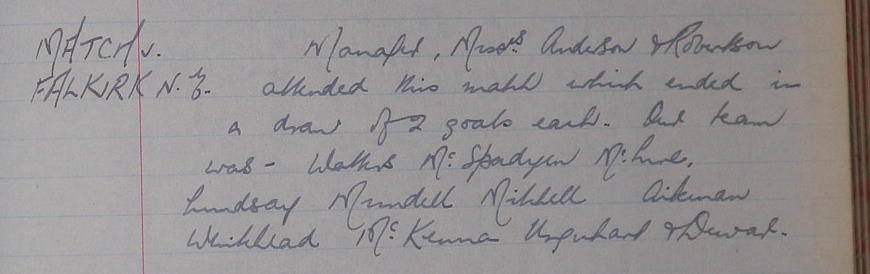 MATCH v. Manager, Messrs Anderson & Robertson
FALKIRK N.B. attended this match which ended in
a draw of 2 goals each. Our team
was - Walker McSpadyen McLure,
Lindsay Mundell Mitchell Aikman
Whitehead McKenna Urquhart & Dewar.